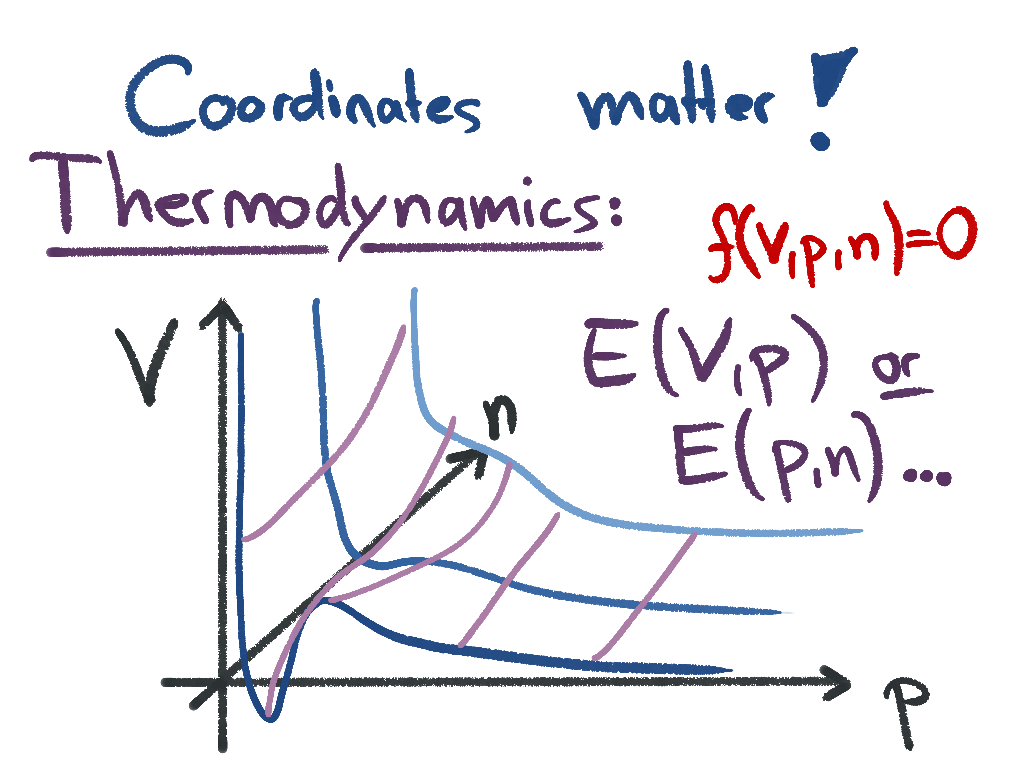 Coordinates matter!
Thermodynamics:
f(V,p,n)=0
V
E(V,p) or
n
E(p,n)...
p